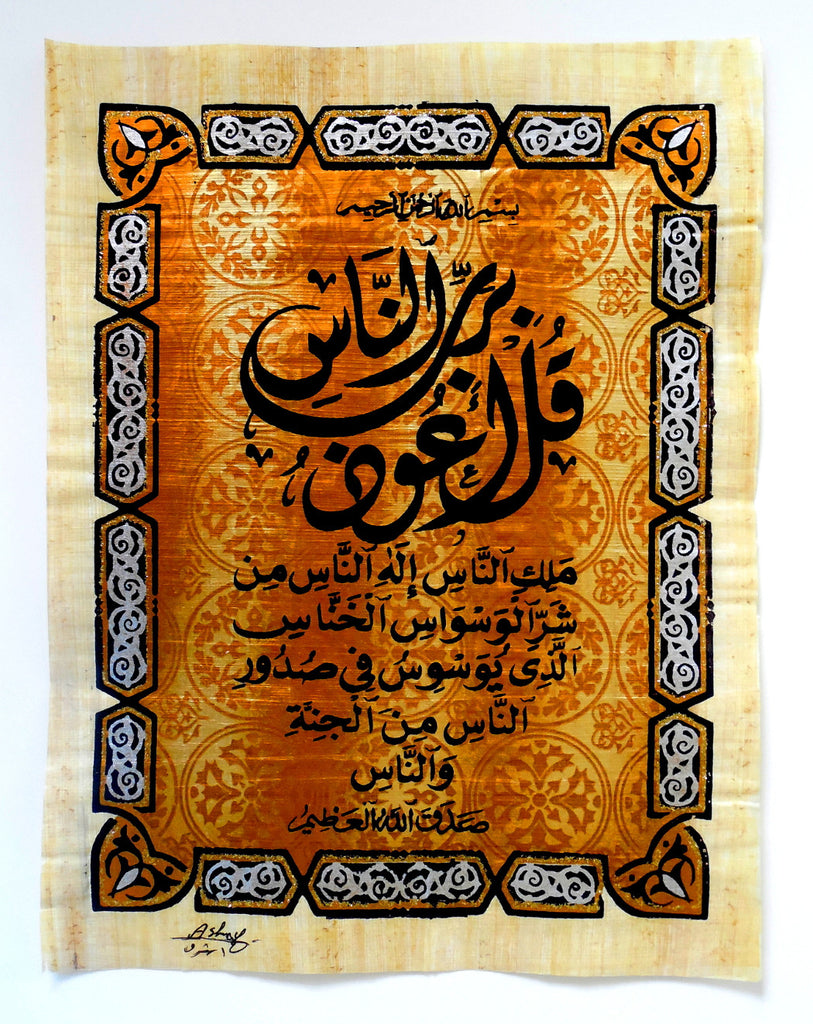 بسم الله الرحمن الرحيم
قُلْ أَعُوذُ بِرَبِّ النَّاسِ
مَلِكِ ٱلنَّاسِ إِلَٰهِ ٱلنَّاسِ مِن
شَرِّ ٱلْوَسْوَاسِ ٱلْخَنَّاسِ
ٱلَّذِى يُوَسْوِسُ فِى صُدُورِ
ٱلنَّاسِ مِنَ ٱلْجِنَّةِ
وَٱلنَّاسِ
صَدَقَ ٱللَّهُ ٱلْعَظِيمُ
اشرف